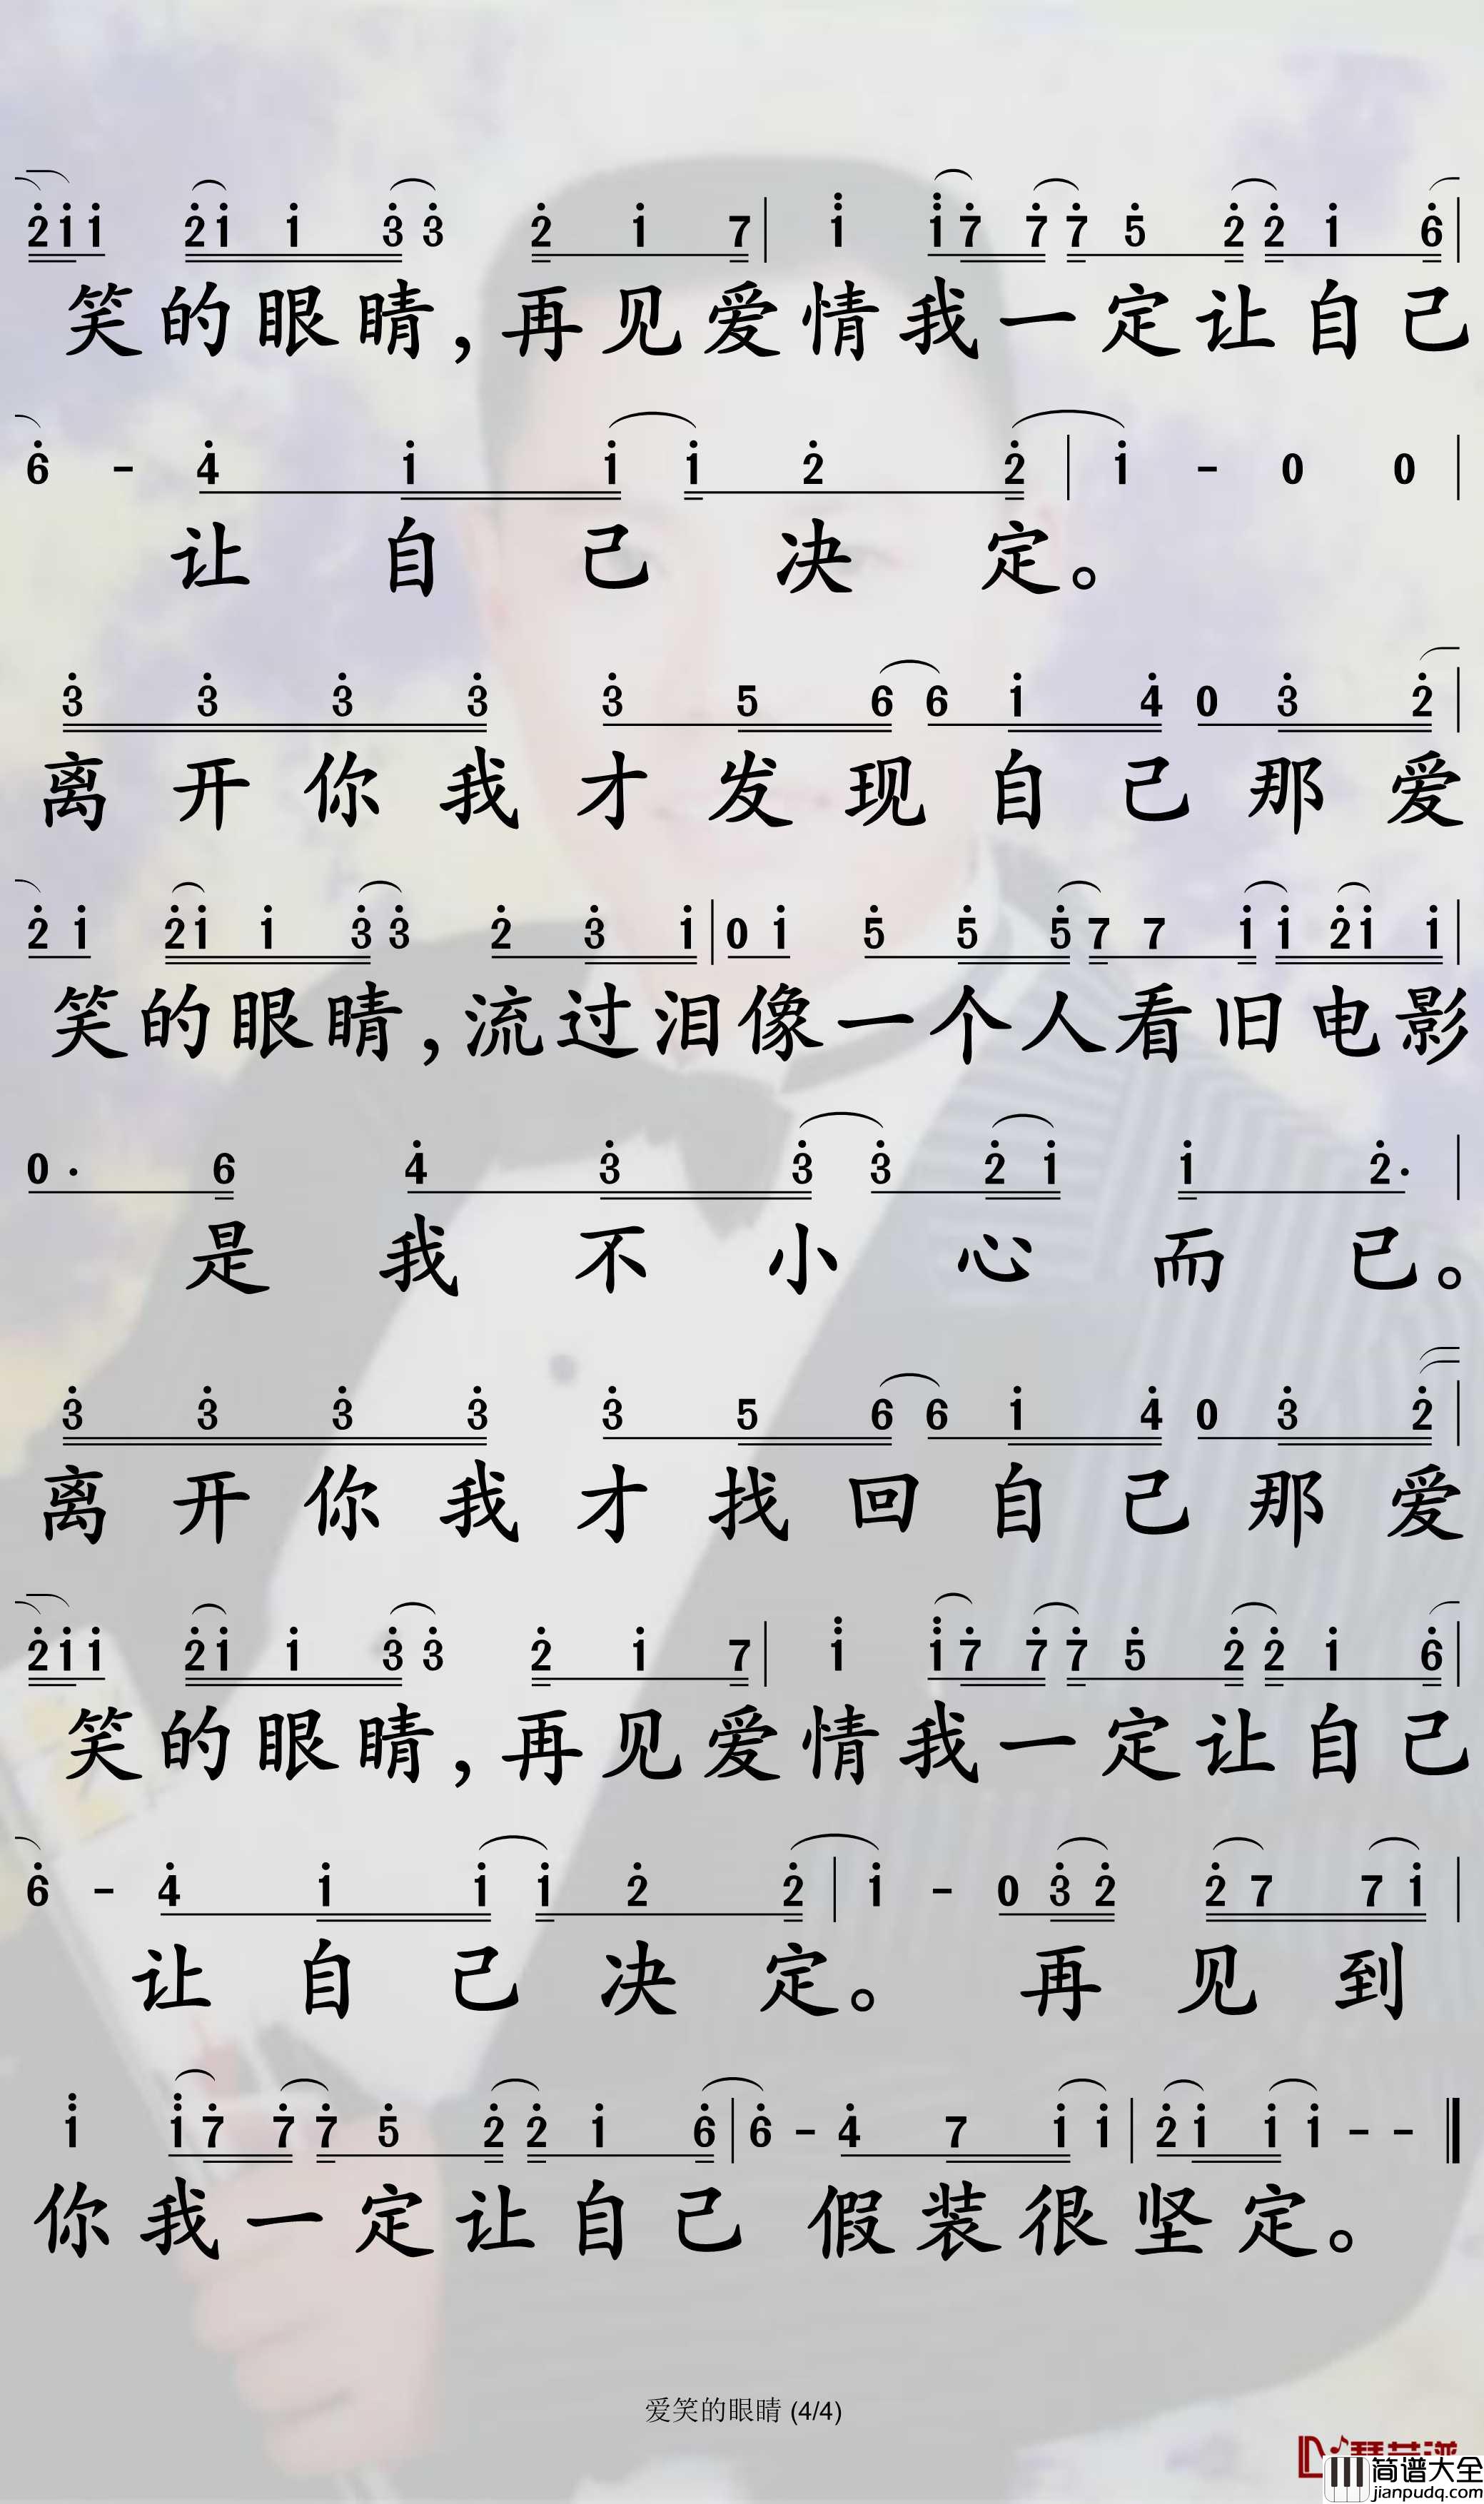 2 1 1 2 1 1 3 3 2 1 7 | 1 1 7 7 7 5 2 2 1 6 |
笑的眼睛,再见爱情我一定让自己
6 - 4 1 1 1 2 2 | 1 - 0 0 |
让自己决定。
3 3 3 3 3 5 6 6 1 4 0 3 2 |
离开你我才发现自己那爱
2 1 2 1 1 3 3 2 3 1 | 0 1 5 5 5 7 7 1 1 2 1 1 |
笑的眼睛,流过泪像一个人看旧电影
0 · 6 4 3 3 3 2 1 1 2 · |
是我不小心而已。
3 3 3 3 3 5 6 6 1 4 0 3 2 |
离开你我才找回自己那爱
2 1 1 2 1 1 3 3 2 1 7 | 1 1 7 7 7 5 2 2 1 6 |
笑的眼睛,再见爱情我一定让自己
6 - 4 1 1 1 2 2 | 1 - 0 3 2 2 7 7 1 |
让自己决定。再见到
1 1 7 7 7 5 2 2 1 6 | 6 - 4 7 1 1 | 2 1 1 1 - -
你我一定让自己 假装很坚定。
爱笑的眼睛 (4/4)
简谱大全
jianpudq.com